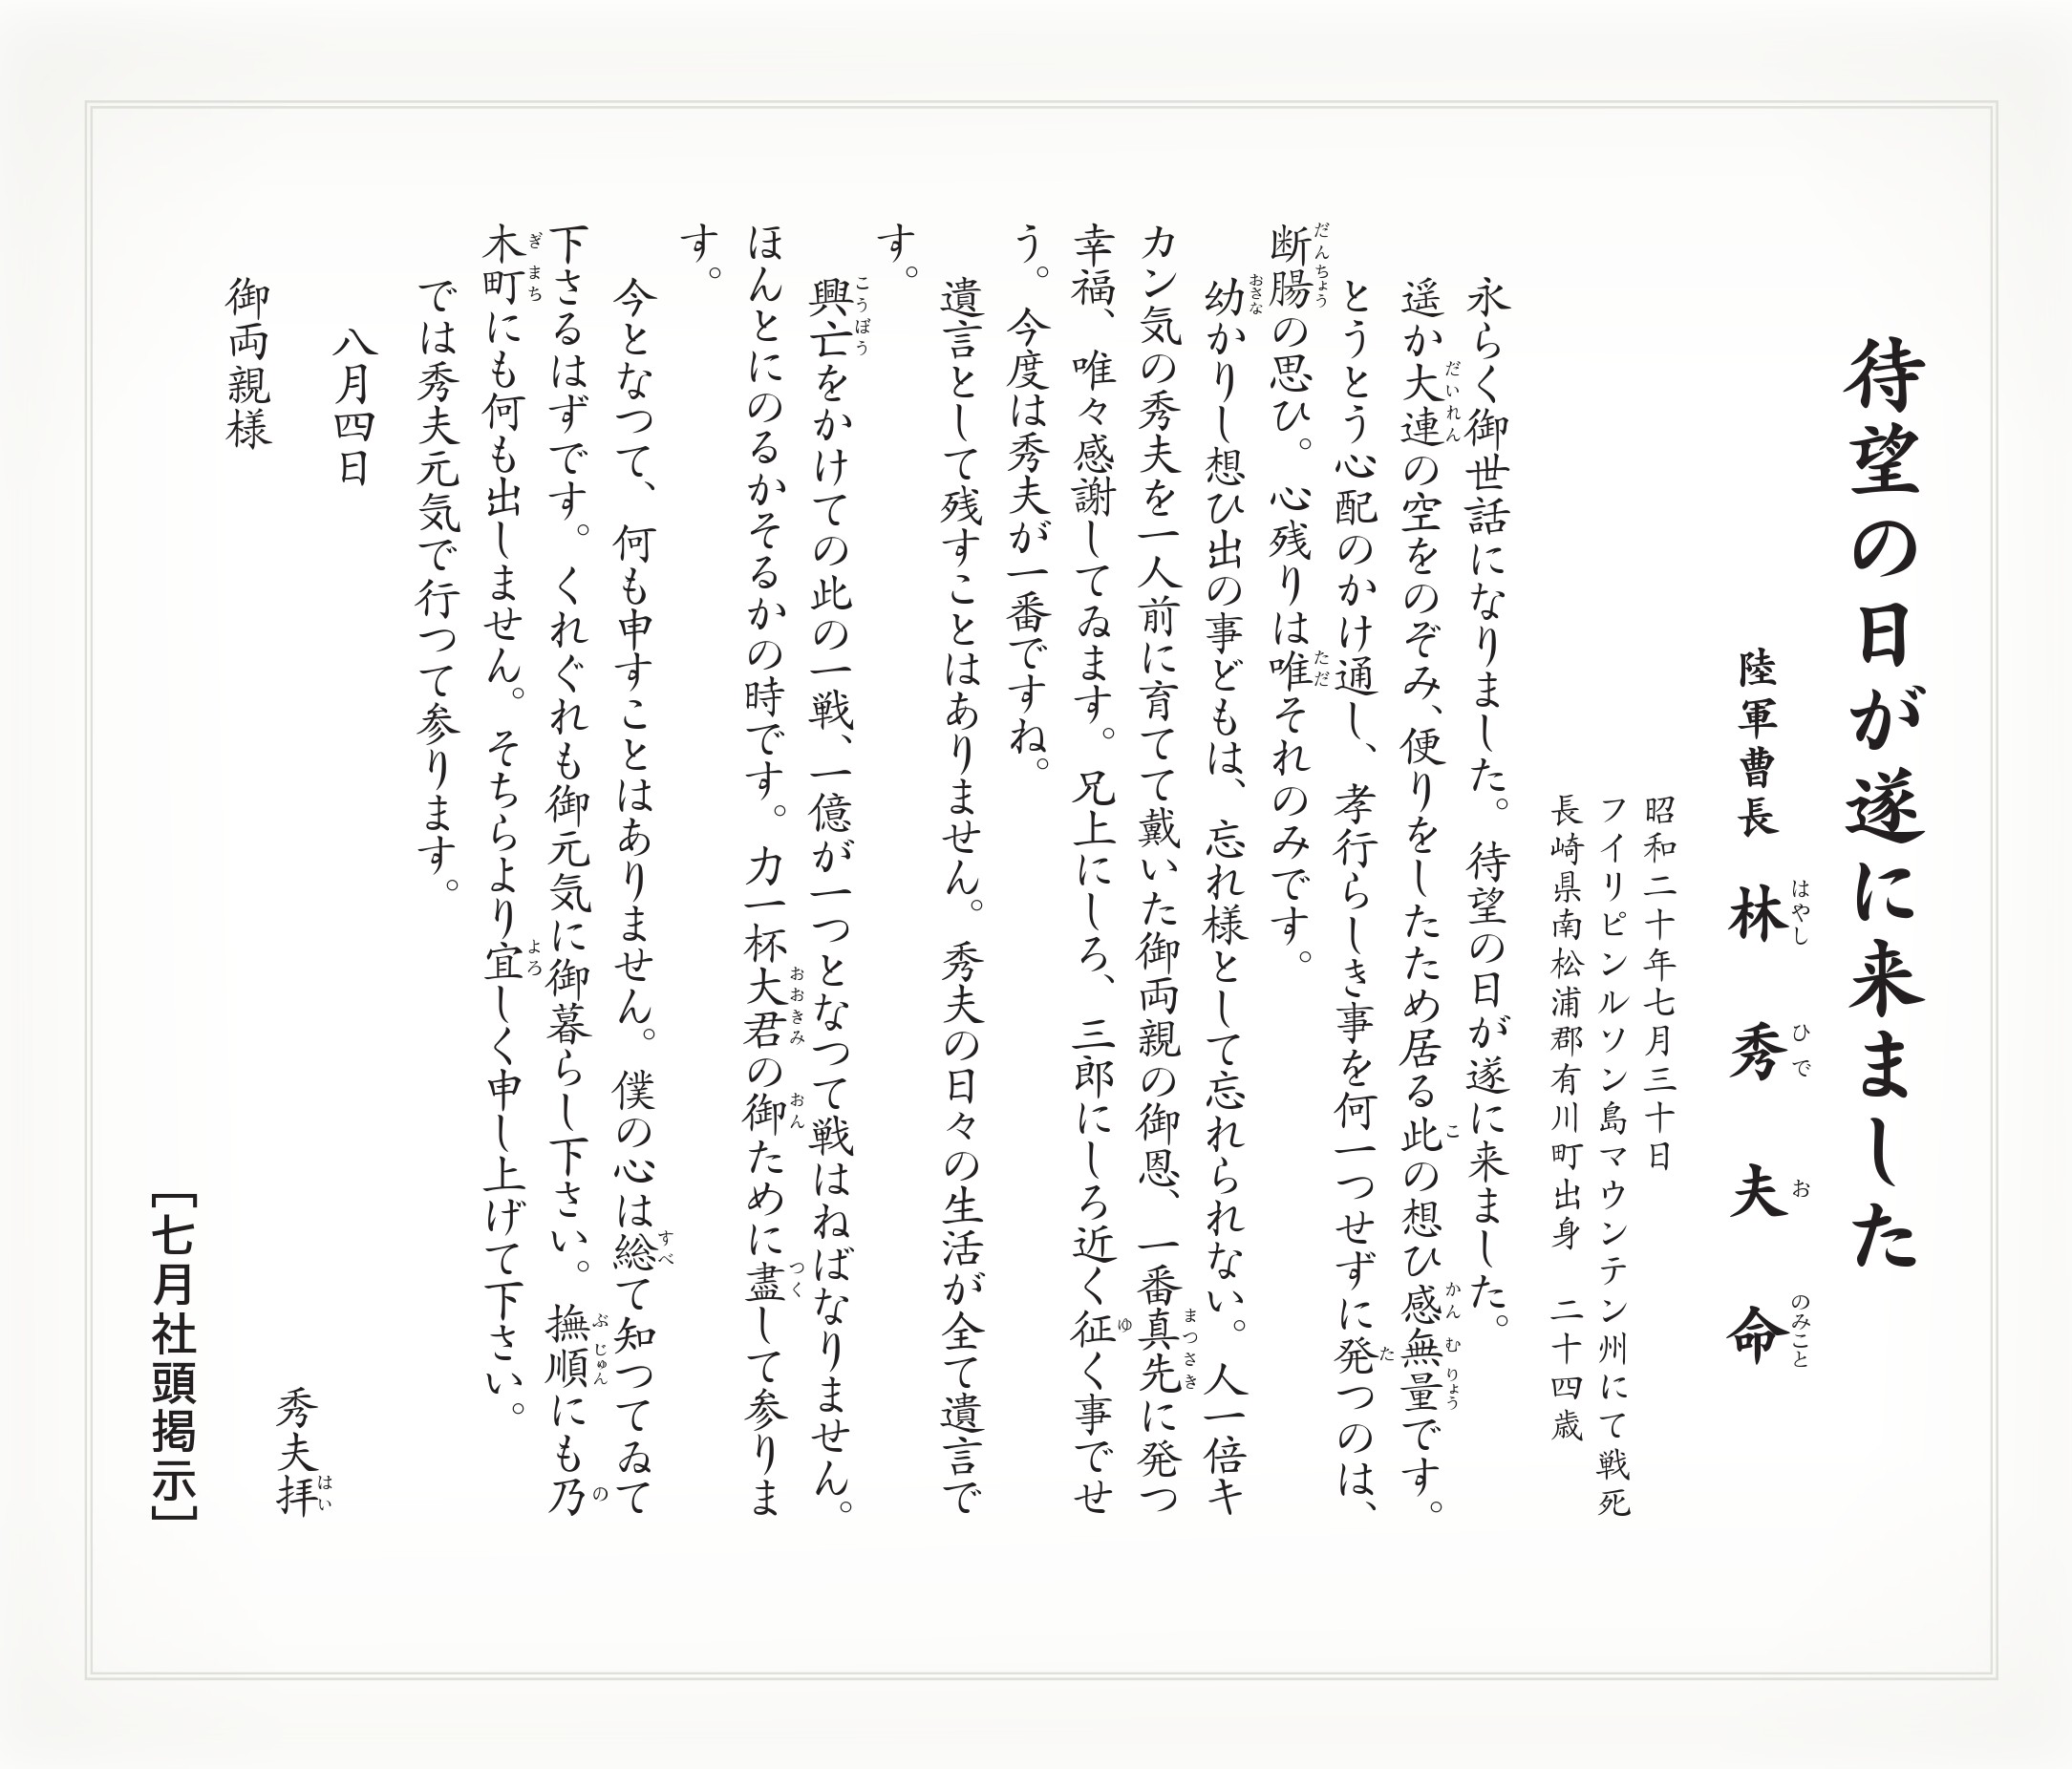 待望の日が遂に来ました
陸軍曹長　林　秀　夫　命
はやし　ひで　お　のみこと
昭和二十年七月三十日
フイリピンルソン島マウンテン州にて戦死
長崎県南松浦郡有川町出身　二十四歳
永らく御世話になりました。待望の日が遂に来ました。
遥か大連の空をのぞみ、便りをしたため居る此の想ひ感無量です。
だいれん　こ　かん　む　りょう
とうとう心配のかけ通し、孝行らしき事を何一つせずに発つのは、
た
断腸の思ひ。心残りは唯それのみです。
だんちょう　ただ
幼かりし想ひ出の事どもは、忘れ様として忘れられない。人一倍キ
おさな
カン気の秀夫を一人前に育てて戴いた御両親の御恩、一番真先に発つ
まつさき
幸福、唯々感謝してゐます。兄上にしろ、三郎にしろ近く征く事でせ
ゆ
う。今度は秀夫が一番ですね。
遺言として残すことはありません。秀夫の日々の生活が全て遺言で
す。
興亡をかけての此の一戦、一億が一つとなつて戦はねばなりません。
こうぼう
ほんとにのるかそるかの時です。力一杯大君の御ために盡して参りま
おおきみ　おん　つく
す。
今となつて、何も申すことはありません。僕の心は総て知つてゐて
すべ
下さるはずです。くれぐれも御元気に御暮らし下さい。撫順にも乃
ぶ　じゅん　の
木町にも何も出しません。そちらより宜しく申し上げて下さい。
ぎ　まち　よろ
では秀夫元気で行つて参ります。
八月四日
秀夫拝
はい
御両親様
［七月社頭掲示］